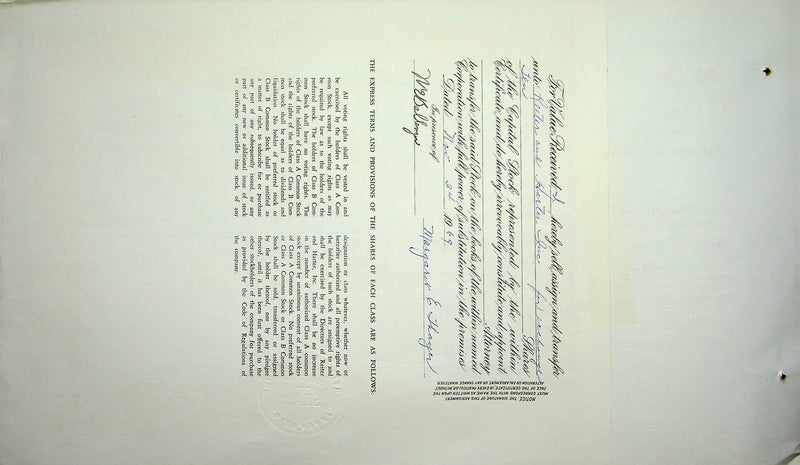 For Value Received I hereby sell, assign and transfer
unto Reiter and Harter Inc for exchange
Ten Shares
of the Capital Stock represented by the within
Certificate, and do hereby irrevocably constitute and appoint
Attorney
to transfer the said Stock on the books of the within named
Corporation with full power of substitution in the premises
Dated Nov 2d 1969
In presence of
Margaret E. Thager
NOTICE. THE SIGNATURE OF THIS ASSIGNMENT
MUST CORRESPOND WITH THE NAME AS WRITTEN UPON THE
FACE OF THE CERTIFICATE, IN EVERY PARTICULAR, WITHOUT
ALTERATION OR ENLARGEMENT, OR ANY CHANGE WHATEVER.
THE EXPRESS TERMS AND PROVISIONS OF THE SHARES OF EACH CLASS ARE AS FOLLOWS:
All voting rights shall be vested in and
be exercised by the holders of Class A Com-
mon Stock, except such voting rights as may
be required by law as to the holders of the
preferred stock. The holders of Class B Com-
mon Stock shall have no voting rights. The
rights of the holders of Class A Common Stock
and the rights of the holders of Class B Com-
mon stock shall be equal as to dividends and
liquidation. No holder of preferred stock or
Class B Common Stock shall be entitled as
a matter of right, to subscribe for or purchase
any part of any subsequently issued, or any
part of any new or additional issue of stock
or certificates convertible into stock of any
designation or class whatever, whether now or
hereafter authorized and all preemptive rights of
the holders of such stock are assigned to and
shall be exercised by the Directors of Reiter
and Harter, Inc. There shall be no increase
in the number of authorized Class A common
stock except by unanimous consent of all holders
of Class A Common Stock. No preferred stock
or Class A Common Stock or Class B Common
Stock shall be sold, transferred or assigned
by the holder thereof, nor by any pledgee
thereof, until it has been first offered to the
other stockholders of the company for purchase
as provided by the Code of Regulations of
the company.